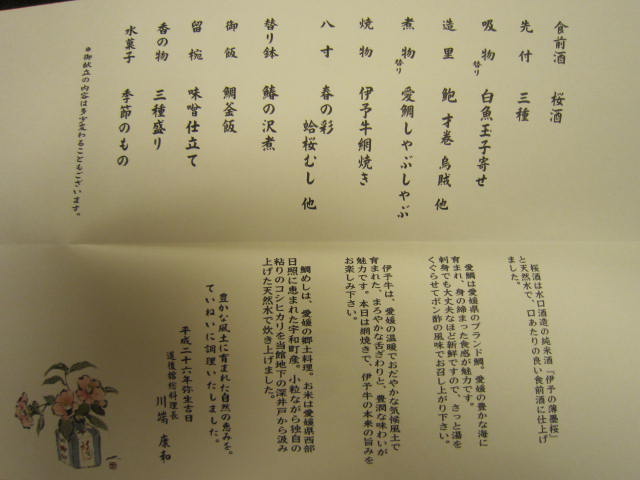 食前酒 桜酒
先付 三種
吸物替り 白魚玉子寄せ
造里 鮑 才巻 烏賊 他
煮物替り 愛鯛しゃぶしゃぶ
焼物 伊予牛網焼き
八寸 春の彩
蛤桜むし 他
替り鉢 鰆の沢煮
御飯 鯛釜飯
留椀 味噌仕立て
香の物 三種盛り
水菓子 季節のもの
*御献立の内容は多少変わることもございます。
桜酒は水口酒造の純米酒「伊予の薄墨桜」
と天然水で、口あたりの良い食前酒に仕上げ
ました。
愛鯛は愛媛県のブランド鯛。愛媛の豊かな海に
育まれ、身の締まった食感が魅力です。
刺身でも大丈夫なほど新鮮ですので、さっと湯を
くぐらせてポン酢の風味でお召し上がり下さい。
伊予牛は、愛媛の温暖でおだやかな気候風土で
育まれた、まろやかな舌ざわりと、豊潤な味わいが
魅力です。本日は網焼きで、伊予牛の本来の旨みを
お楽しみ下さい。
鯛めしは、愛媛の郷土料理。お米は愛媛県西部
日照に恵まれた宇和町産。小粒ながら独自の
粘りのコシヒカリを当館地下の深井戸から汲み
上げた天然水で炊き上げました。
豊かな風土に育まれた自然の恵みを。
ていねいに調理いたしました。
平成二十六年弥生吉日
道後館総料理長
川端 康和